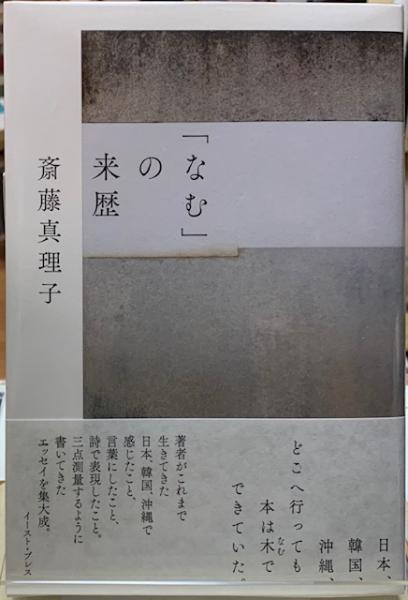 「なむ」
の
来歴
斎藤真理子
日本、
韓国、
沖縄、
どこへ行っても
本は木で
なむ
できていた。
著者がこれまで
生きてきた
日本、韓国、沖縄で
感じたこと、
言葉にしたこと、
詩で表現したこと。
三点測量するように
書いてきた
エッセイを集大成。
イースト・プレス